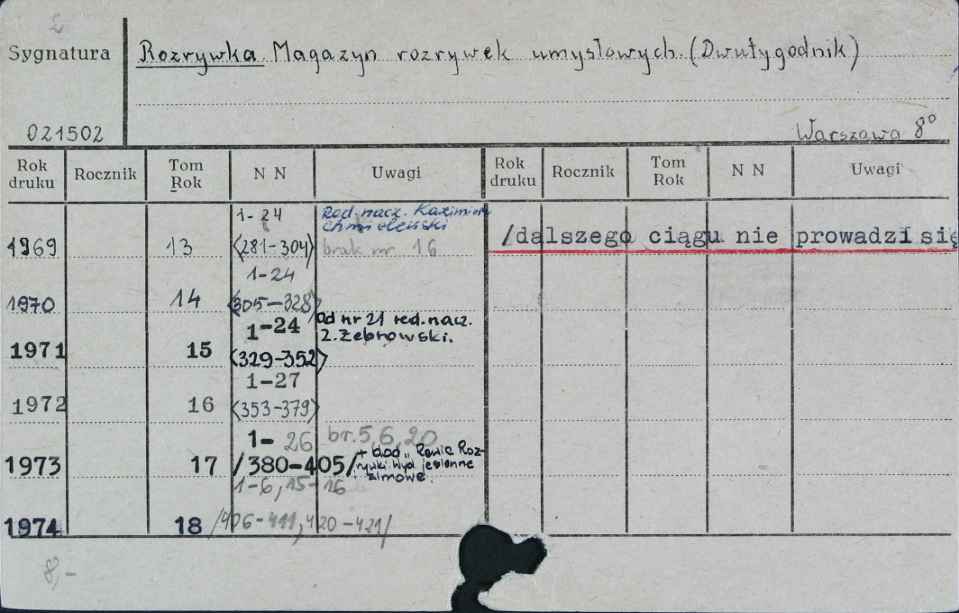 Sygnatura
Rozrywka. Magazyn rozrywek umysłowych. (Dwutygodnik)
021502
Warszawa 8°
Rok druku Rocznik Tom Rok N N Uwagi Rok druku Rocznik Tom Rok N N Uwagi
1-24 Red. nacz. Kazimierz
1969 13 <281-304> brak nr 16
/dalszego ciągu nie prowadzi się
1-24
1970 14 <305-328>
1-24 Od nr 21 red. nacz.
Z. Żebrowski.
1971 15 <329-352>
1-27
1972 16 <353-379>
1- 26 br. 5, 6, 20
+ dod. „Rewia Roz-
1973 17 /380-405/ rywki. Wyd. jesienne
zimowe.
1-6, 15-16
1974 18 /406-411, 420-421/
8,-